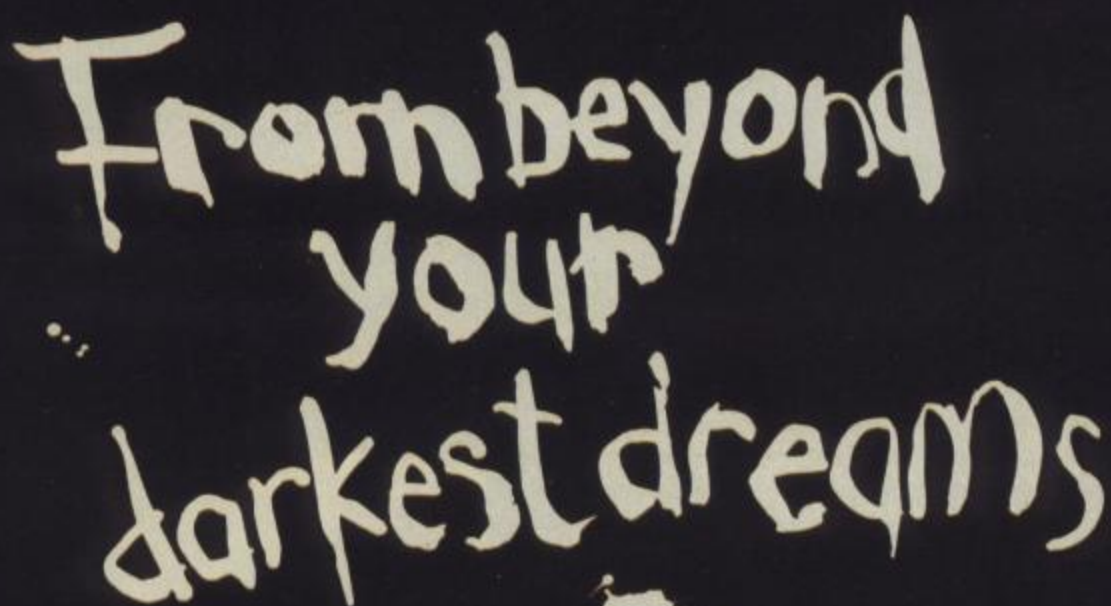 From beyond
your
darkest dreams